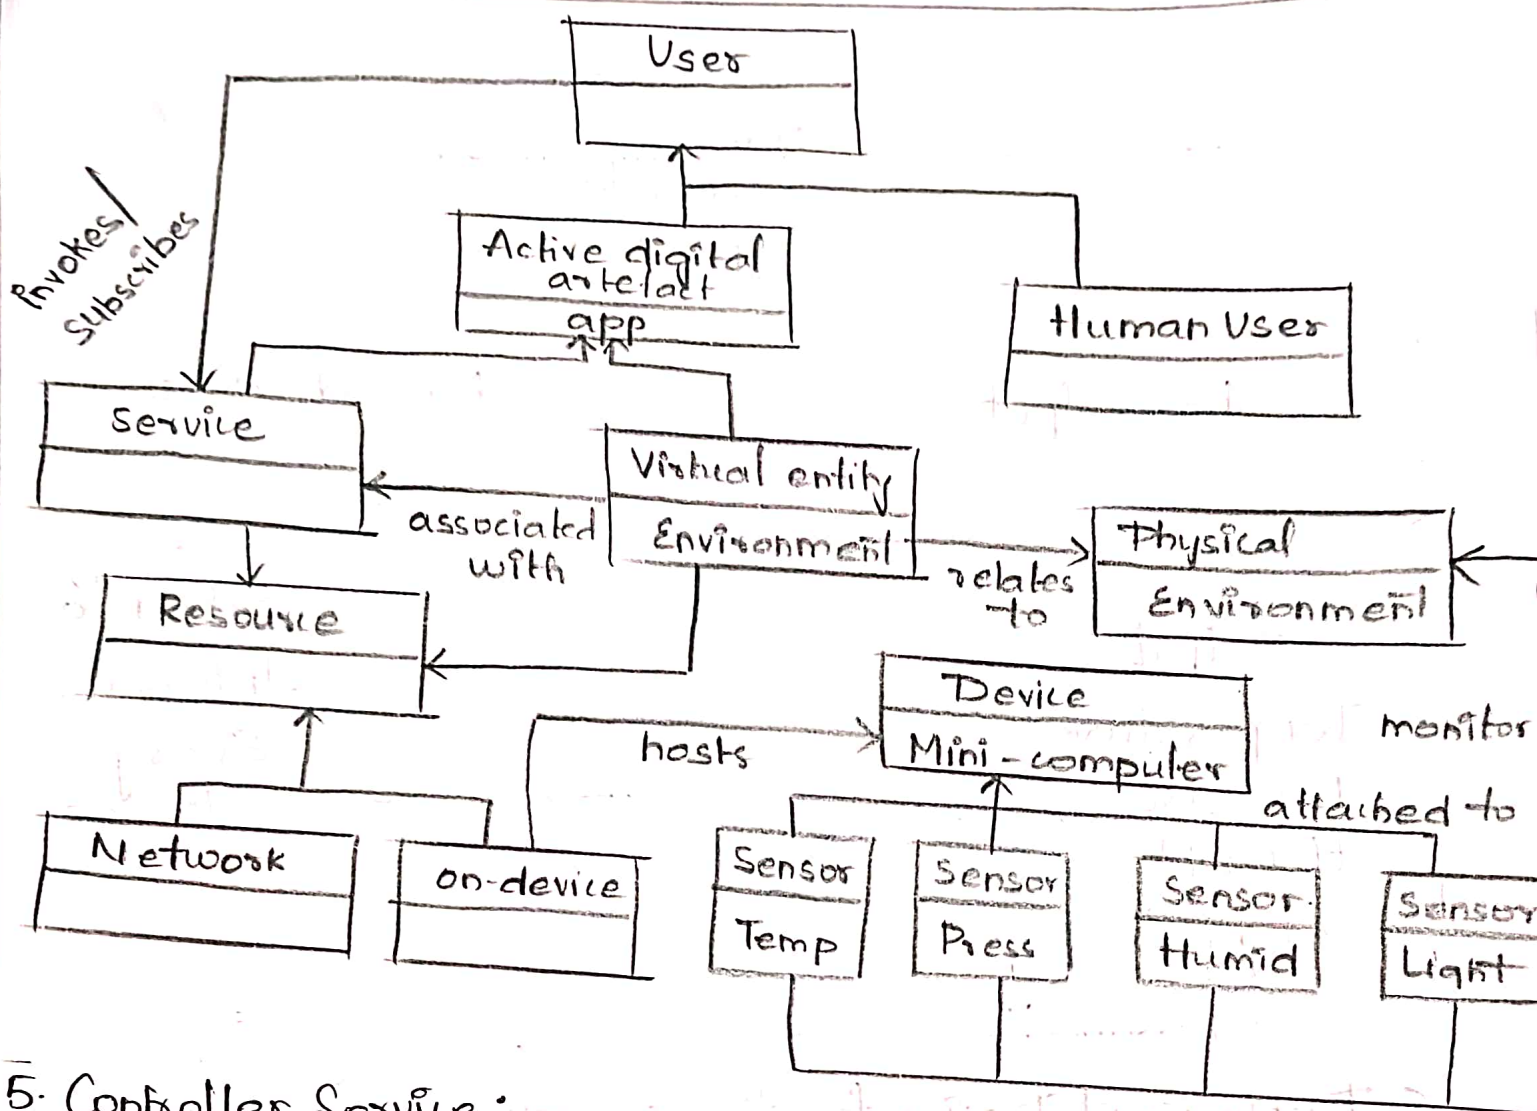 User
invokes/
subscribes
Active digital
artefact
app
Human User
Service
Virtual entity
Environment
associated
with
relates
to
Physical
Environment
Resource
Device
Mini-computer
hosts
monitor
attached to
Network
on-device
Sensor
Temp
Sensor
Press
Sensor
Humid
Sensor
Light
5. Controller Service: